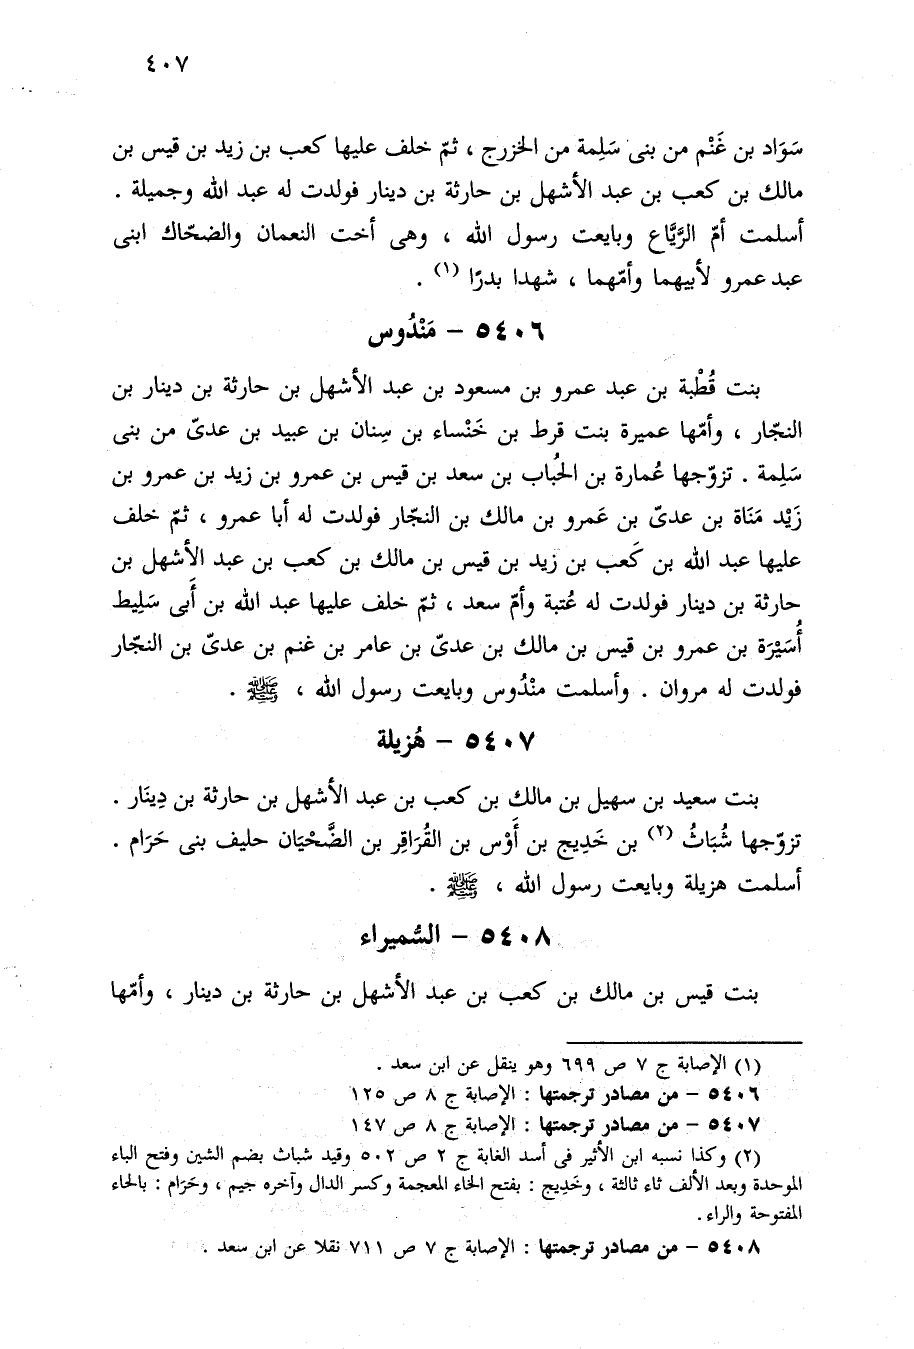 ٤٠٧
سَوَاد بن غَنْم من بنى سَلِمة من الخزرج ، ثمّ خلف عليها كعب بن زيد بن قيس بن
مالك بن كعب بن عبد الأشهل بن حارثة بن دينار فولدت له عبد الله وجميلة .
أسلمت أمّ الرَّيَّاع وبايعت رسول الله ، وهى أخت النعمان والضحّاك ابنى
عبد عمرو لأبيهما وأمّهما ، شهدا بدرًا (١) .
٥٤٠٦ – مَنْدُوس
بنت قُطْبة بن عبد عمرو بن مسعود بن عبد الأشهل بن حارثة بن دينار بن
النجّار ، وأمّها عميرة بنت قرط بن خَنْساء بن سِنان بن عبيد بن عدىّ من بنى
سَلِمة . تزوّجها عُمارة بن الحُباب بن سعد بن قيس بن عمرو بن زيد بن عمرو بن
زَيْد مَنَاة بن عدىّ بن عَمرو بن مالك بن النجّار فولدت له أبا عمرو ، ثمّ خلف
عليها عبد الله بن كَعب بن زيد بن قيس بن مالك بن كعب بن عبد الأشهل بن
حارثة بن دينار فولدت له عُتبة وأمّ سعد ، ثمّ خلف عليها عبد الله بن أَبى سَلِيط
أُسَيْرَة بن عمرو بن قيس بن مالك بن عدىّ بن عامر بن غنم بن عدىّ بن النجّار
فولدت له مروان . وأسلمت منْدُوس وبايعت رسول الله ، ﷺ .
٥٤٠٧ – هُزيلة
بنت سعيد بن سهيل بن مالك بن كعب بن عبد الأشهل بن حارثة بن دِينَار .
تزوّجها شُبَاثُ (٢) بن خَدِيج بن أَوْس بن القُرَاقِر بن الضَّحْيَان حليف بنى حَرَام .
أسلمت هزيلة وبايعت رسول الله ، ﷺ .
٥٤٠٨ – السُّميراء
بنت قيس بن مالك بن كعب بن عبد الأشهل بن حارثة بن دينار ، وأمّها
(١) الإصابة ج ٧ ص ٦٩٩ وهو ينقل عن ابن سعد .
٥٤٠٦ – من مصادر ترجمتها : الإصابة ج ٨ ص ١٢٥
٥٤٠٧ – من مصادر ترجمتها : الإصابة ج ٨ ص ١٤٧
(٢) وكذا نسبه ابن الأثير فى أسد الغابة ج ٢ ص ٥٠٢ وقيد شباث بضم الشين وفتح الباء
الموحدة وبعد الألف ثاء ثالثة ، وخَدِيج : بفتح الخاء المعجمة وكسر الدال وآخره جيم ، وحَرَام : بالحاء
المفتوحة والراء .
٥٤٠٨ – من مصادر ترجمتها : الإصابة ج ٧ ص ٧١١ نقلا عن ابن سعد .